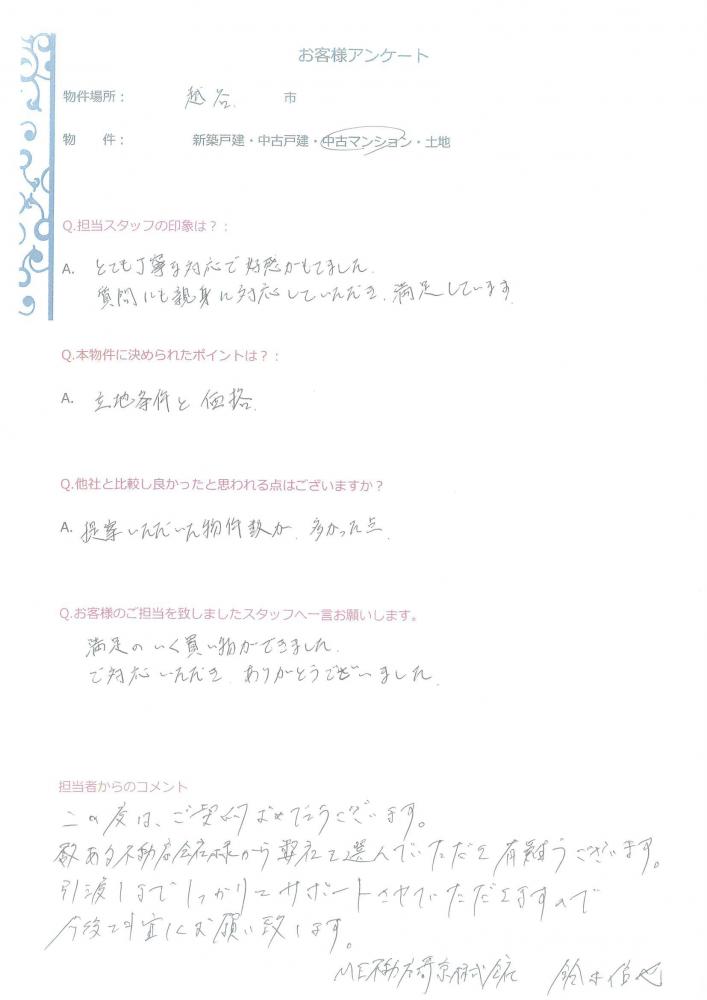 お客様アンケート
物件場所： 越谷 市
物　件： 新築戸建・中古戸建・中古マンション・土地
Q.担当スタッフの印象は？：
A. とても丁寧な対応で好感がもてました.
質問にも親身に対応していただき、満足しています.
Q.本物件に決められたポイントは？：
A. 立地条件と価格.
Q.他社と比較し良かったと思われる点はございますか？
A. 提案いただいた物件数が、多かった点.
Q.お客様のご担当を致しましたスタッフへ一言お願いします。
満足のいく買い物ができました.
ご対応いただき、ありがとうございました.
担当者からのコメント
この度は、ご契約おめでとうございます。
数ある不動産会社様から弊社を選んでいただき有難うございます。
引渡しまでしっかりとサポートさせていただきますので
今後とも宜しくお願い致します。
ME不動産 株式会社 鈴木